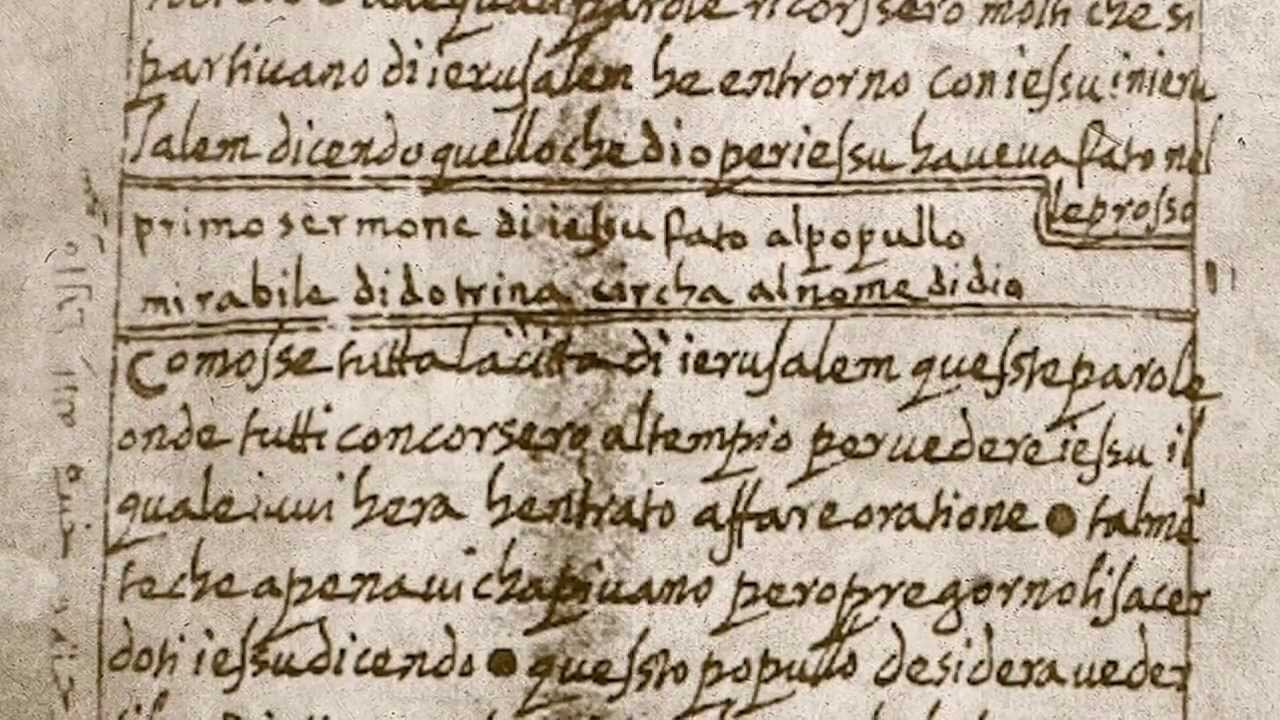 parole ricorssero molti che si
partiuano di ierusalem he entrorno con iessu in ieru
salem dicendo quello che dio per iessu haueua fato nel
leprosso
primo sermone di iessu fato al popullo
mirabile di dotrina circha al nome di dio
Comosse tutta la citta di ierusalem quesste parole
onde tutti concorsero al tempio per uedere iessu il
quale iui hera hentrato affare oratione ● talmē
te che apena ui chapiuano pero pregorno li sacer
doti iessu dicendo ● quessto popullo desidera ueder